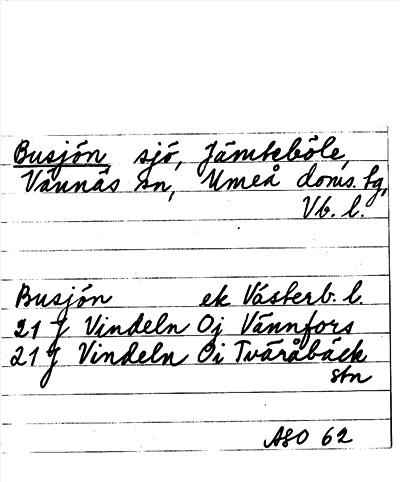 Busjön, sjö, Jämteböle,
Vännäs sn, Umeå doms. tg,
Vb. l.
Busjön ek Västerb. l.
21 J Vindeln Oj Vännfors
21 J Vindeln Oi Tväråbäck
stn
ASO 62